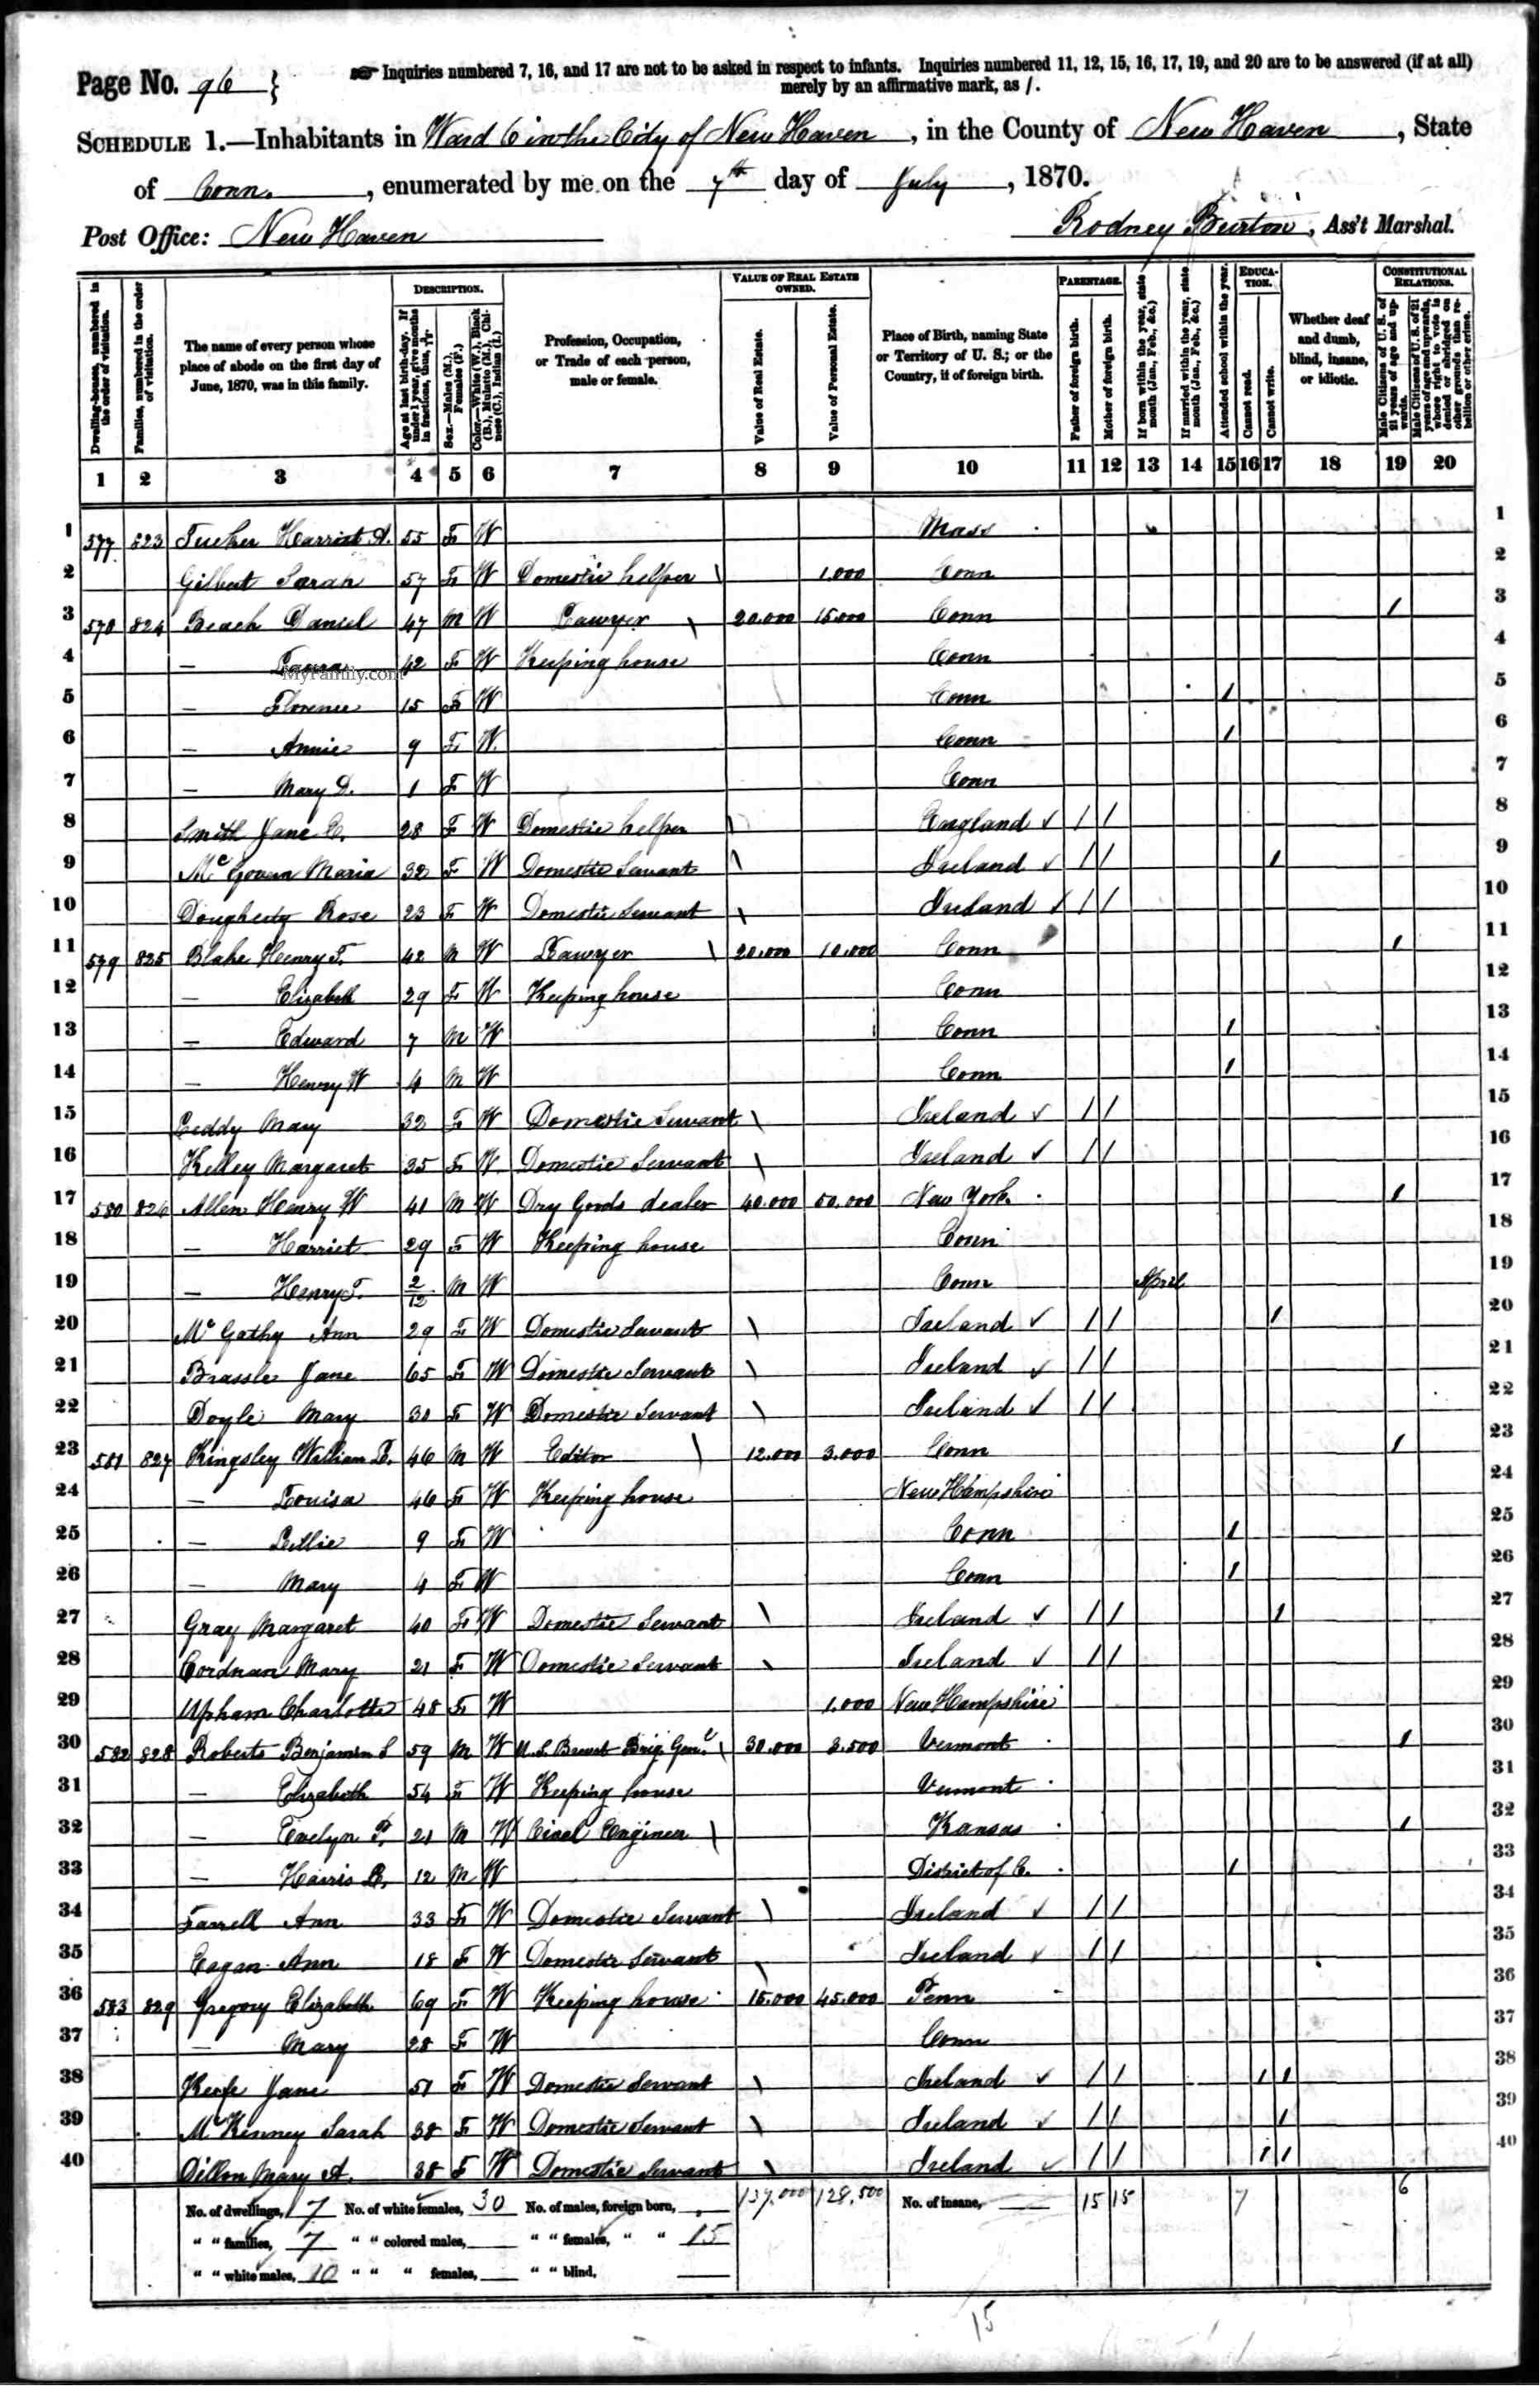 Page No. 96 }
Inquiries numbered 7, 16, and 17 are not to be asked in respect to infants. Inquiries numbered 11, 12, 15, 16, 17, 19, and 20 are to be answered (if at all)
merely by an affirmative mark, as /.
SCHEDULE 1.—Inhabitants in Ward 6 in the City of New Haven, in the County of New Haven, State
of Conn., enumerated by me on the 7th day of July, 1870.
Post Office: New Haven
Rodney Burton, Ass't Marshal.
Dwelling-houses, numbered in the order of visitation.
Families, numbered in the order of visitation.
The name of every person whose place of abode on the first day of June, 1870, was in this family.
DESCRIPTION.
Age at last birth-day. If under 1 year, give months in fractions, thus, 3/12.
Sex.—Males (M.), Females (F.)
Color.—White (W.), Black (B.), Mulatto (M.), Chinese (C.), Indian (I.)
Profession, Occupation, or Trade of each person, male or female.
VALUE OF REAL ESTATE OWNED.
Value of Real Estate.
Value of Personal Estate.
Place of Birth, naming State or Territory of U. S.; or the Country, if of foreign birth.
PARENTAGE.
Father of foreign birth.
Mother of foreign birth.
If born within the year, state month (Jan., Feb., &c.)
If married within the year, state month (Jan., Feb., &c.)
Attended school within the year.
EDUCATION.
Cannot read.
Cannot write.
Whether deaf and dumb, blind, insane, or idiotic.
CONSTITUTIONAL RELATIONS.
Male Citizens of U. S. of 21 years of age and upwards.
Male Citizens of U. S. of 21 years of age and upwards, whose right to vote is denied or abridged on other grounds than rebellion or other crime.
1 2 3 4 5 6 7 8 9 10 11 12 13 14 15 16 17 18 19 20
1 577 823 Tucker Harriet A. 55 F W Mass 1
2 Gilbert Sarah 57 F W Domestic helper \ 1,000 Conn 2
3 578 824 Beach Daniel 47 M W Lawyer \ 20.000 15.000 Conn / 3
4 — Laura 42 F W Keeping house Conn 4
MyFamily.com
5 — Florence 15 F W Conn / 5
6 — Annie 9 F W Conn / 6
7 — Mary D. 1 F W Conn 7
8 Smith Jane E. 28 F W Domestic helper \ England ✓ / / 8
9 McGovern Maria 32 F W Domestic Servant \ Ireland ✓ / / / 9
10 Dougherty Rose 23 F W Domestic Servant \ Ireland ✓ / / 10
11 579 825 Blake Henry T. 42 M W Lawyer \ 20.000 10.000 Conn / 11
12 — Elizabeth 29 F W Keeping house Conn 12
13 — Edward 7 M W Conn / 13
14 — Henry W 4 M W Conn / 14
15 Leddy Mary 32 F W Domestic Servant \ Ireland ✓ / / 15
16 Kelley Margaret 35 F W Domestic Servant \ Ireland ✓ / / 16
17 580 826 Allen Henry W 41 M W Dry Goods dealer 40.000 50.000 New York / 17
18 — Harriet 29 F W Keeping house Conn 18
19 — Henry T. 2/12 M W Conn April 19
20 McGathy Ann 29 F W Domestic Servant \ Ireland ✓ / / / 20
21 Brassle Jane 65 F W Domestic Servant \ Ireland ✓ / / 21
22 Doyle Mary 30 F W Domestic Servant \ Ireland ✓ / / 22
23 581 827 Kingsley William L. 46 M W Editor \ 12.000 3.000 Conn / 23
24 — Louisa 46 F W Keeping house New Hampshire 24
25 — Lillie 9 F W Conn / 25
26 — Mary 4 F W Conn / 26
27 Gray Margaret 40 F W Domestic Servant \ Ireland ✓ / / / 27
28 Cordnan Mary 21 F W Domestic Servant \ Ireland ✓ / / 28
29 Upham Charlotte 48 F W 1.000 New Hampshire 29
30 582 828 Roberts Benjamin S 59 M W U.S. Brevet Brig Genl \ 30.000 3.500 Vermont / 30
31 — Elizabeth 54 F W Keeping house Vermont 31
32 — Evelyn P. 21 M W Civel Engineer \ Kansas / 32
33 — Harris L. 12 M W District of C. / 33
34 Farrell Ann 33 F W Domestic Servant \ Ireland ✓ / / 34
35 Eagan Ann 18 F W Domestic Servant \ Ireland ✓ / / 35
36 583 829 Gregory Elizabeth 69 F W Keeping house 15.000 45.000 Penn 36
37 — Mary 28 F W Conn 37
38 Keefe Jane 51 F W Domestic Servant \ Ireland ✓ / / / / 38
39 McKenney Sarah 38 F W Domestic Servant \ Ireland ✓ / / / 39
40 Dillon Mary A. 38 F W Domestic Servant \ Ireland ✓ / / / / 40
No. of dwellings, 7 No. of white females, 30 No. of males, foreign born, 137,000 128,500 No. of insane, 15 15 7 6
" " families, 7 " " colored males, " " females, " " 15
" " white males, 10 " " " females, " " blind,
15